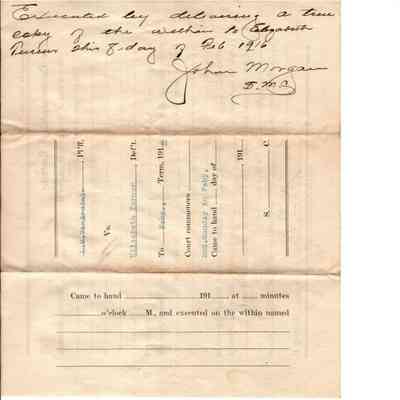 Executed by delivering a true
copy of the within to Elizabeth
Turner this 8 day of Feb 1916
John Morgan
Pl'ff.
Vs.
Elizabeth Turner Def't.
To Feby., Term, 191
Court commences
2nd. Monday in Feby.
Came to hand day of
191
S. C.
Came to hand 191 at minutes
o'clock M., and executed on the within named